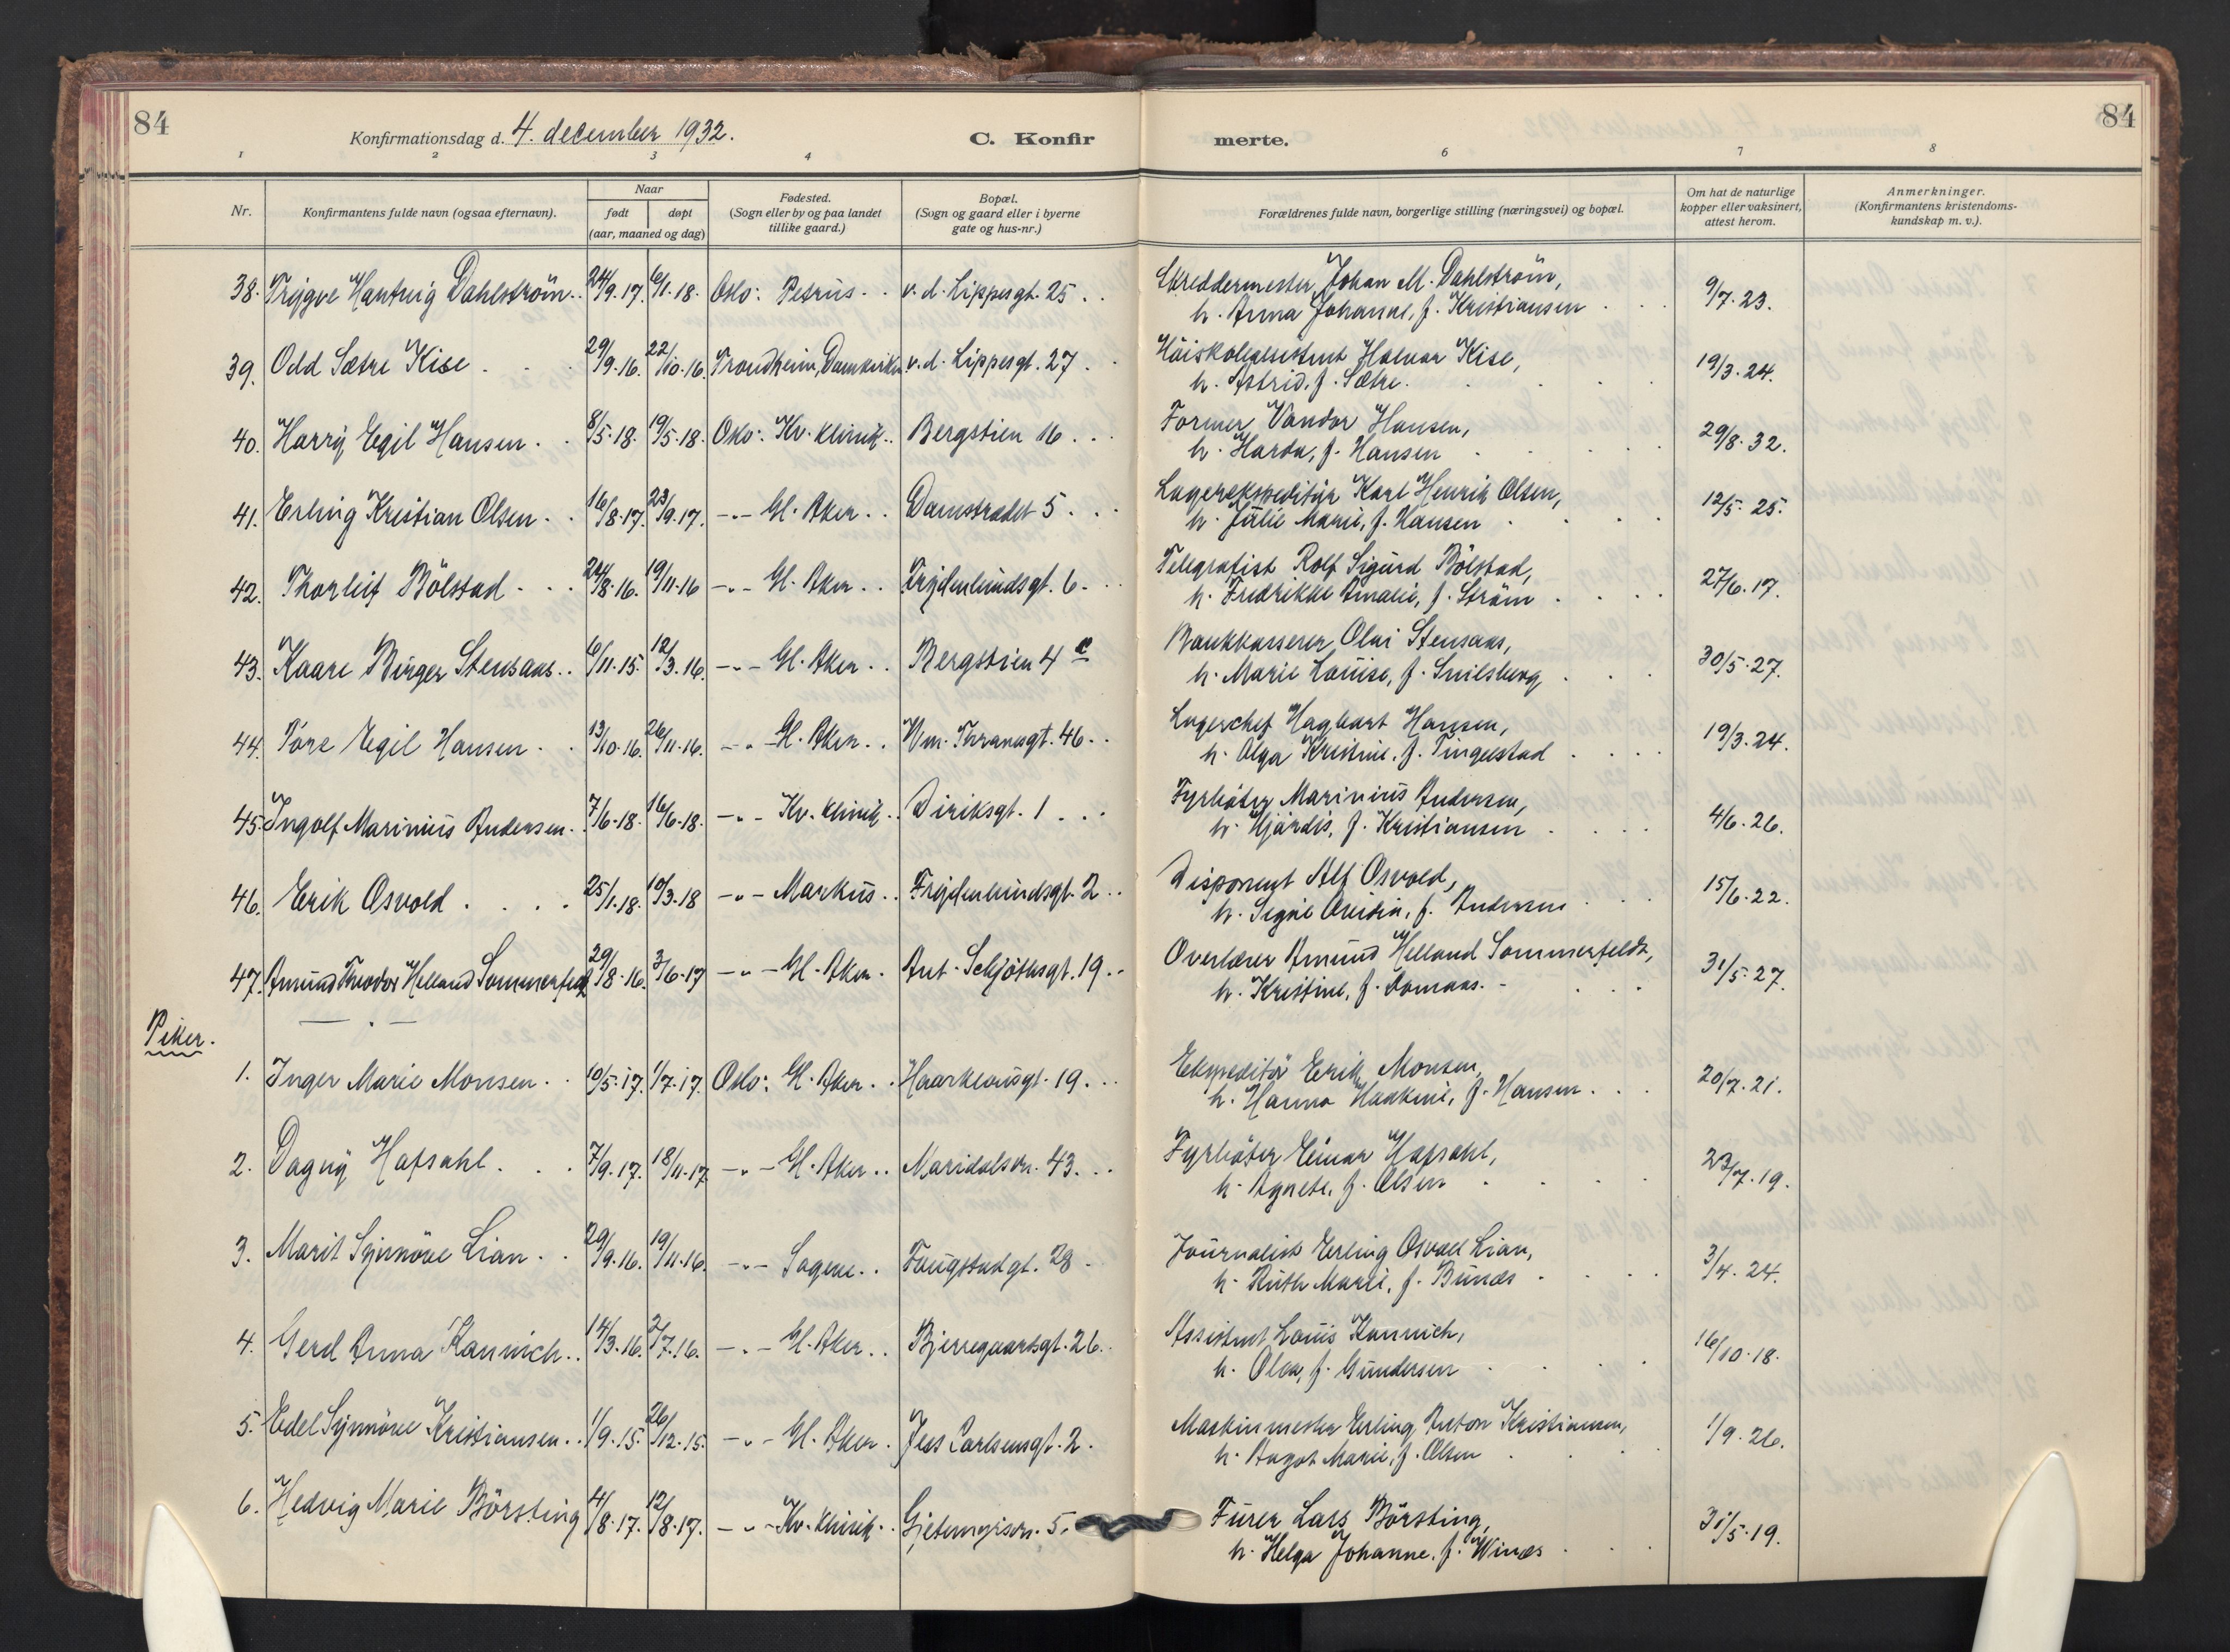 84
Konfirmationsdag d. 4. december 1932.
C. Konfir
merte.
84
1 2 3 4 6 7 8
Nr.
Konfirmantens fulde navn (ogsaa efternavn).
Naar
født døpt
(aar, maaned og dag)
Fødested.
(Sogn eller by og paa landet
tillike gaard.)
Bopæl.
(Sogn og gaard eller i byerne
gate og hus-nr.)
Forældrenes fulde navn, borgerlige stilling (næringsvei) og bopæl.
Om hat de naturlige
kopper eller vaksinert,
attest herom.
Anmerkninger.
(Konfirmantens kristendoms-
kundskap m. v.).
38. Trygve Hartvig Dahlström . . 24/9.17. 6/1.18. Oslo: Petrus . . v. d. Lippesgt. 25 . . Skreddermester Johan M. Dahlström, 9/7.23.
h. Anna Johanne, f. Kristiansen
39. Odd Sætre Kise . . 29/9.16. 22/10.16. Trondheim, Domkirken v. d. Lippesgt. 27 . Höiskoleassistent Halvar Kise, 19/3.24.
h. Astrid, f. Sætre.
40. Harry Egil Hansen . . 8/5.18. 19/5.18. Oslo: Kv. klinik . . Bergstien 16 . . . Former Vandor Hansen, 29/8.32.
h. Harda, f. Hansen
41. Erling Kristian Olsen . . 16/8.17. 23/9.17. -"- Gl. Aker . . Damstredet 5 . . . Lagerekspeditör Karl Henrik Olsen, 12/5.25.
h. Julie Marie, f. Hansen
42. Thorleif Bölstad . . . 24/8.16. 19/11.16 -"- Gl. Aker . . Frydenlundsgt. 6. . Telegrafist Rolf Sigurd Bölstad, 27/6.17.
h. Fredrikke Amalie, f. Ström
43. Kaare Birger Stensaas . . 6/11.15. 12/3.16. -"- Gl. Aker . . Bergstien 4 c Bankkasserer Olai Stensaas, 30/5.27.
h. Marie Louise, f. Smilsberg
44. Tore Egil Hansen . . 13/10.16. 26/11.16. -"- Gl. Aker . . Wm. Thranesgt. 46 . . Lagerchef Hagbart Hansen, 19/3.24.
h. Olga Kristine, f. Tingelstad
45. Ingolf Marinius Andersen . . 7/6.18. 16/6.18. -"- Kv. klinik . Diriksgt. 1 . . . Fyrböter Marinius Andersen, 4/6.26.
h. Hjördis, f. Kristiansen
46. Erik Osvold . . . . 25/1.18. 10/3.18 -"- Markus . . Frydenlundsgt. 2 . . Disponent Alf Osvold, 15/6.22.
h. Signe Ovidia, f. Andersen
47. Amund Theodor Helland Sommerfeldt 29/8.16. 3/6.17 -"- Gl. Aker . Ant. Schjöthsgt. 19 . . Overlærer Amund Helland Sommerfeldt, 31/5.27.
h. Kristine, f. Domaas.
Piker.
1. Inger Marie Monsen . . 10/5.17. 1/7.17. Oslo: Gl. Aker . . Haarklousgt. 19 . . Ekspeditör Erik Monsen, 20/7.21.
h. Hanna Haakine, f. Hansen
2. Dagny Hafsahl . . . 7/9.17. 18/11.17 -"- Gl. Aker . . Maridalsvn. 43 . . . Fyrböter Einar Hafsahl, 23/7.19.
h. Agnete, f. Olsen
3. Marit Synnöve Lian . . 29/9.16. 19/11.16. -"- Sagene . . Faugstadgt. 28 . Journalist Erling Osvald Lian, 3/4.24.
h. Ruth Marie, f. Bunæs
4. Gerd Anna Kannich . . 14/3.16. 2/7.16. -"- Gl. Aker . . Bjerregaardsgt. 26 . . Assistent Louis Kannich, 16/10.18.
h. Olea, f. Gundersen
5. Edel Synnöve Kristiansen . . 1/9.15. 26/12.15. -"- Gl. Aker . Jess Carlsensgt. 2 . Maskinmester Erling Anton Kristiansen, 1/9.26.
h. Aagot Marie, f. Olsen
6. Hedvig Marie Börsting 4/8.17. 12/8.17. -"- Kv. klinik . . Gjetemyrsvn. 5. Furer Lars Börsting, 31/5.19.
h. Helga Johanne, f. Winæs